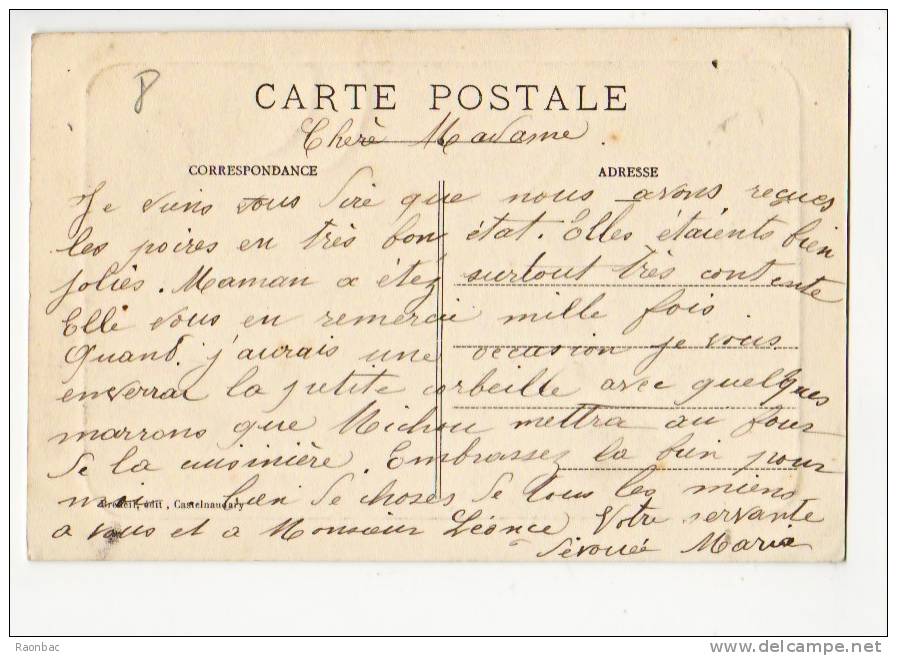 8
CARTE POSTALE
Chère Madame
CORRESPONDANCE
ADRESSE
Je viens vous dire que nous avons reçues
les poires en très bon état. Elles étaients bien
jolies. Maman a étéz surtout très contente
Elle vous en remercie mille fois
Quand j'aurais une occasion je vous
enverrai la petite corbeille avec quelques
marrons que Michou mettra au four
de la cuisinière. Embrassez la bien pour
moi bien de choses de tous les miens
édit, Castelnaudary
a vous et a Monsieur Léonce Votre servante
dévouée Marie
Raonbac
delcampe.net